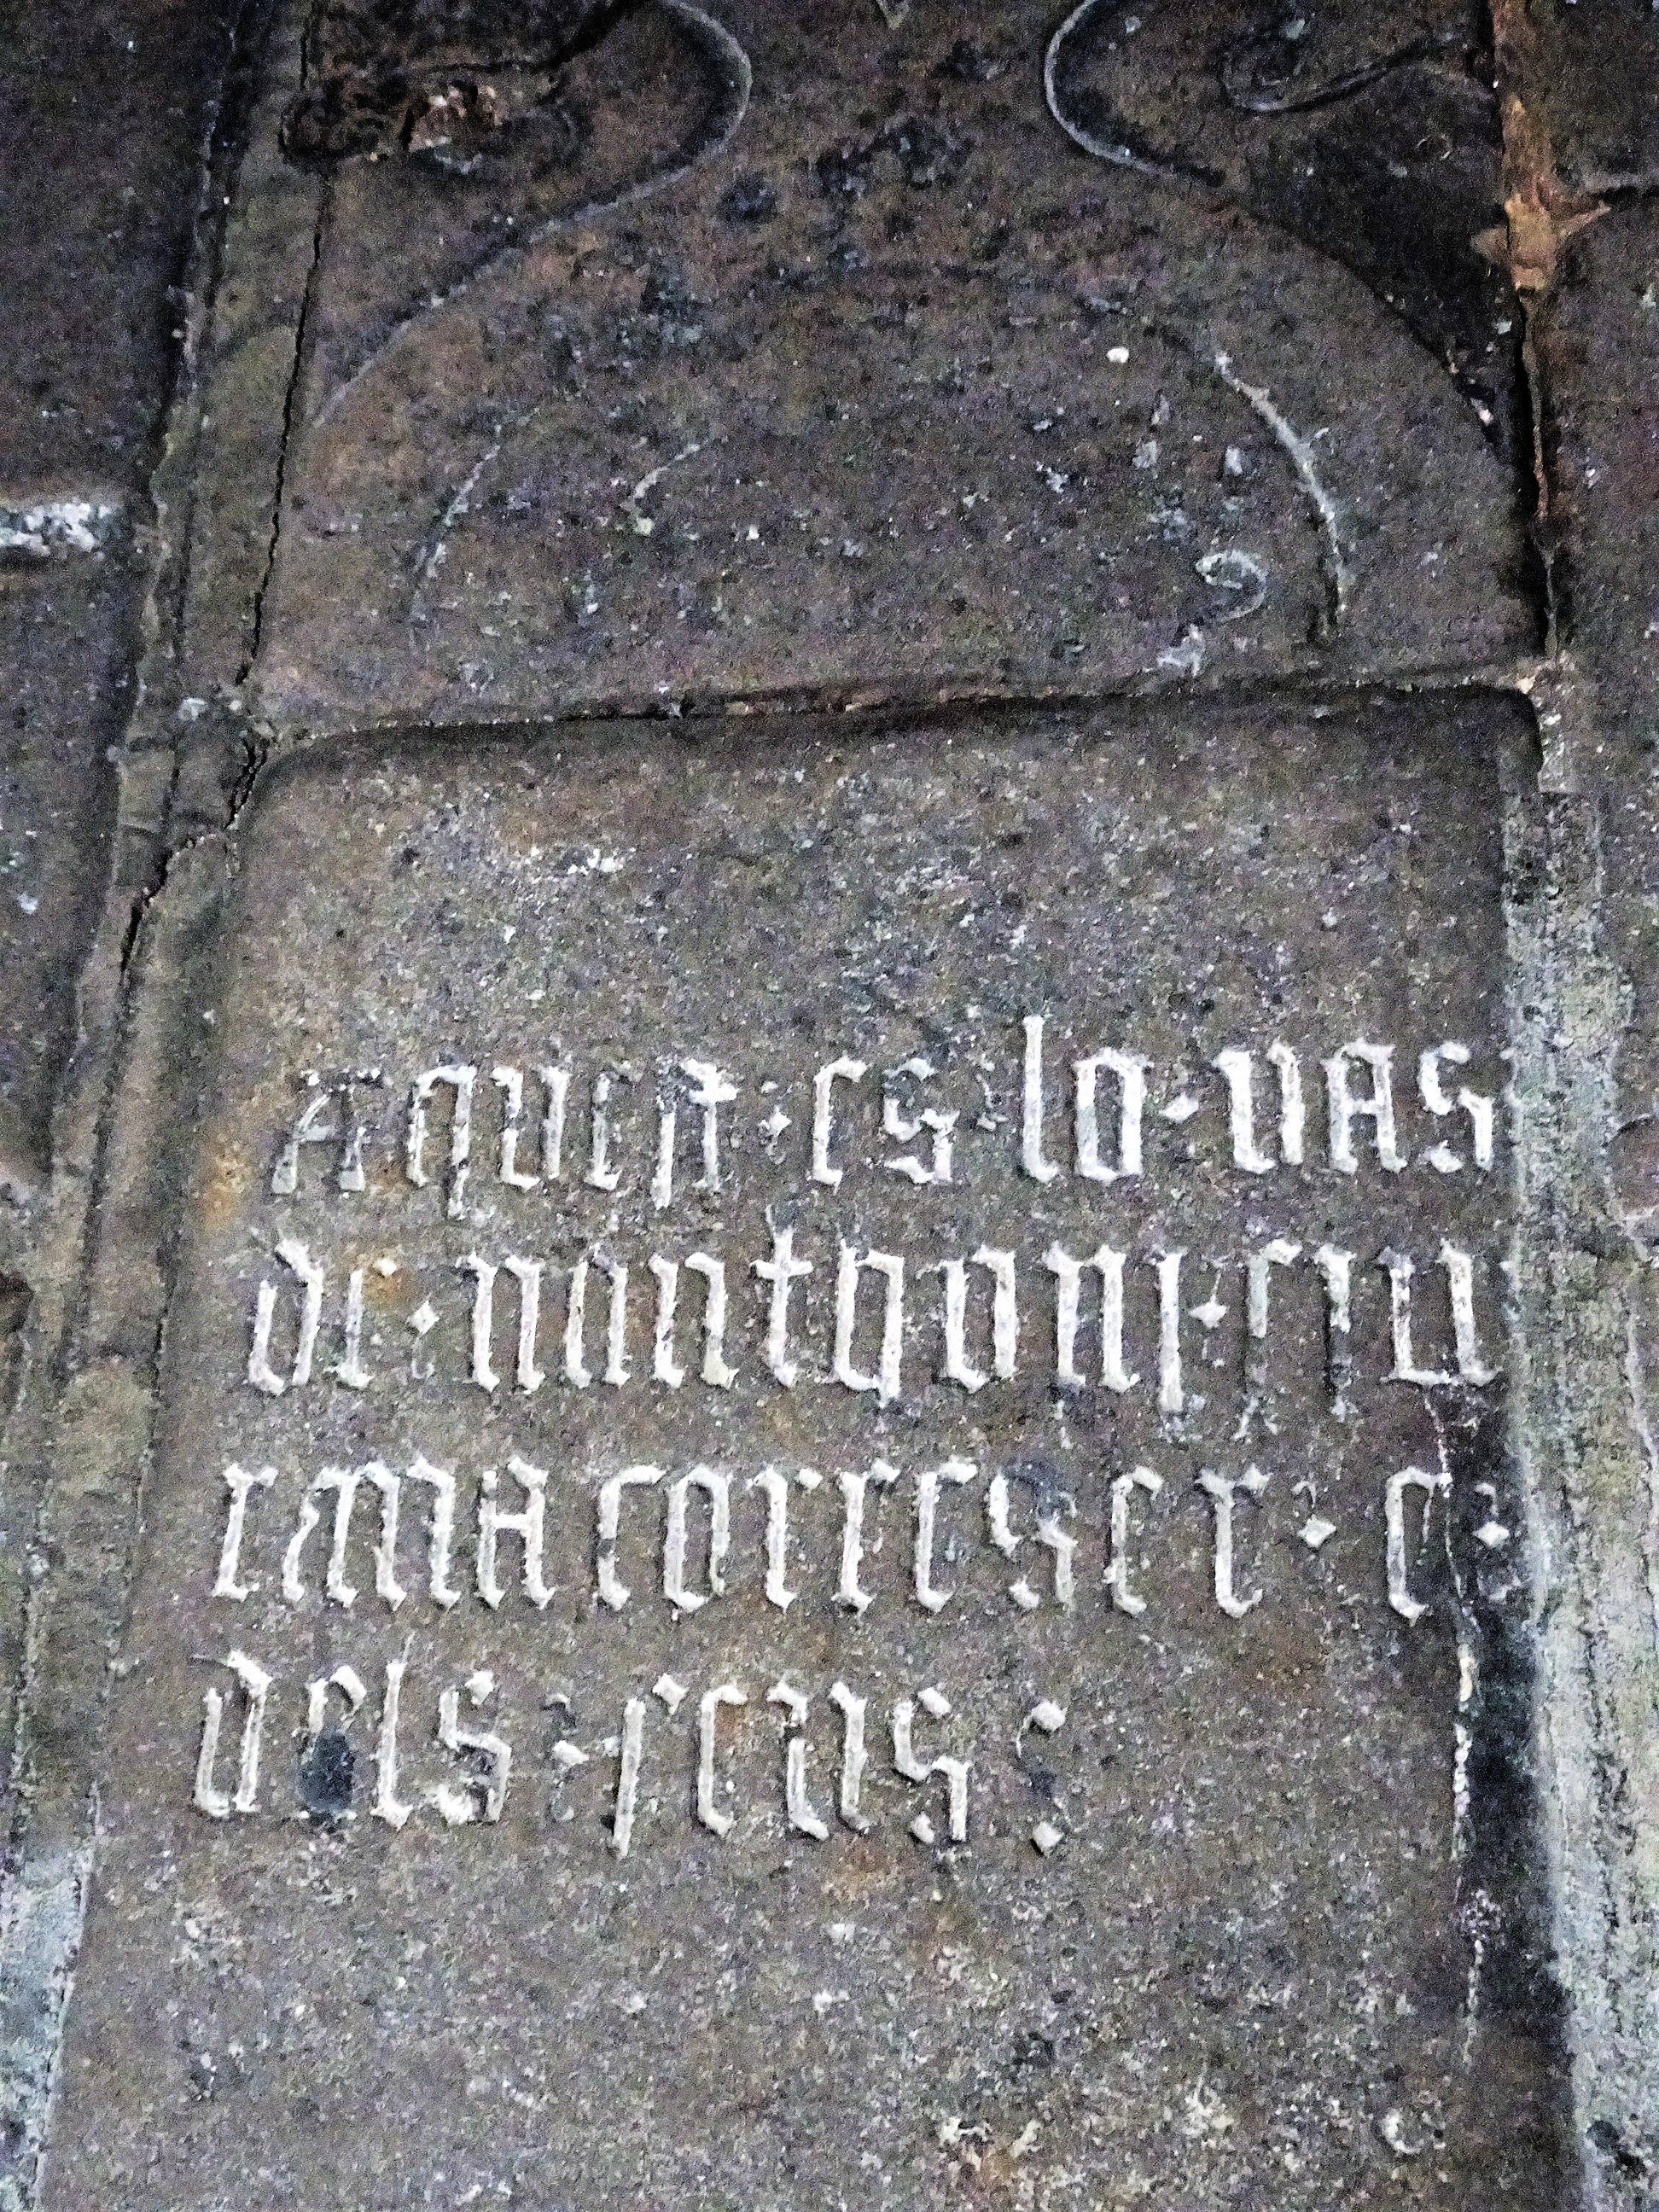 Aquest · es · lo · vas
de · nanthoni ·
correger · e ·
dels · seus :